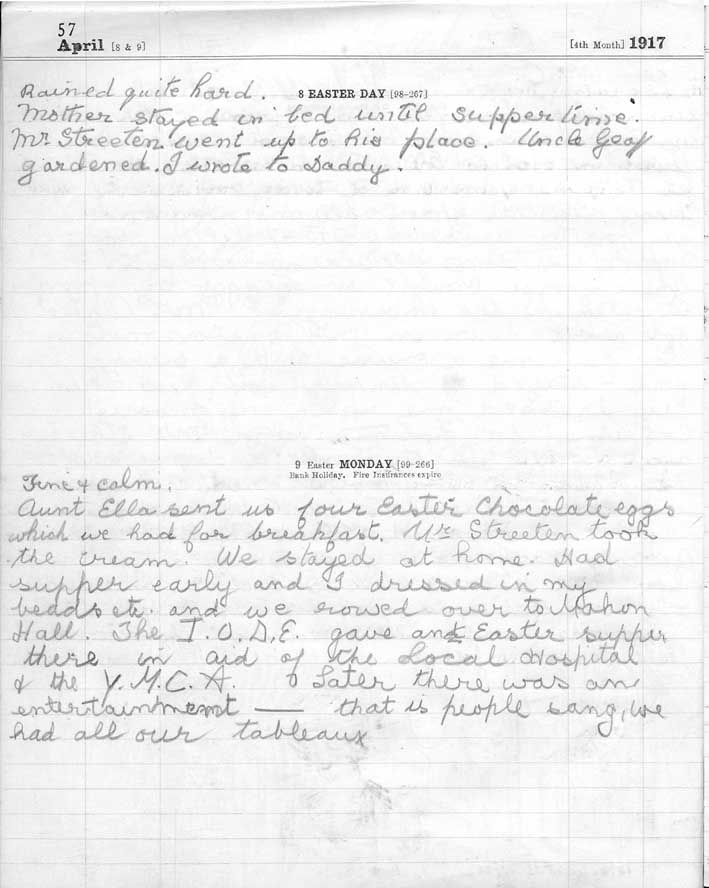 57
April [8 & 9] [4th Month] 1917
Rained quite hard. 8 EASTER DAY [98-267]
Mother stayed in bed until supper time.
Mr Streeten went up to his place. Uncle Geof
gardened. I wrote to Daddy.
9 Easter MONDAY [99-266]
Bank Holiday. Fire Insurances expire
Fine & calm.
Aunt Ella sent us four Easter Chocolate eggs
which we had for breakfast. Mr Streeten took
the cream. We stayed at home. Had
supper early and I dressed in my
beads etc. and we rowed over to Mahon
Hall. The I.O.D.E. gave an Easter supper
there in aid of the Local Hospital
& the Y.M.C.A. Later there was an
entertainment — that is people sang, we
had all our tableaux